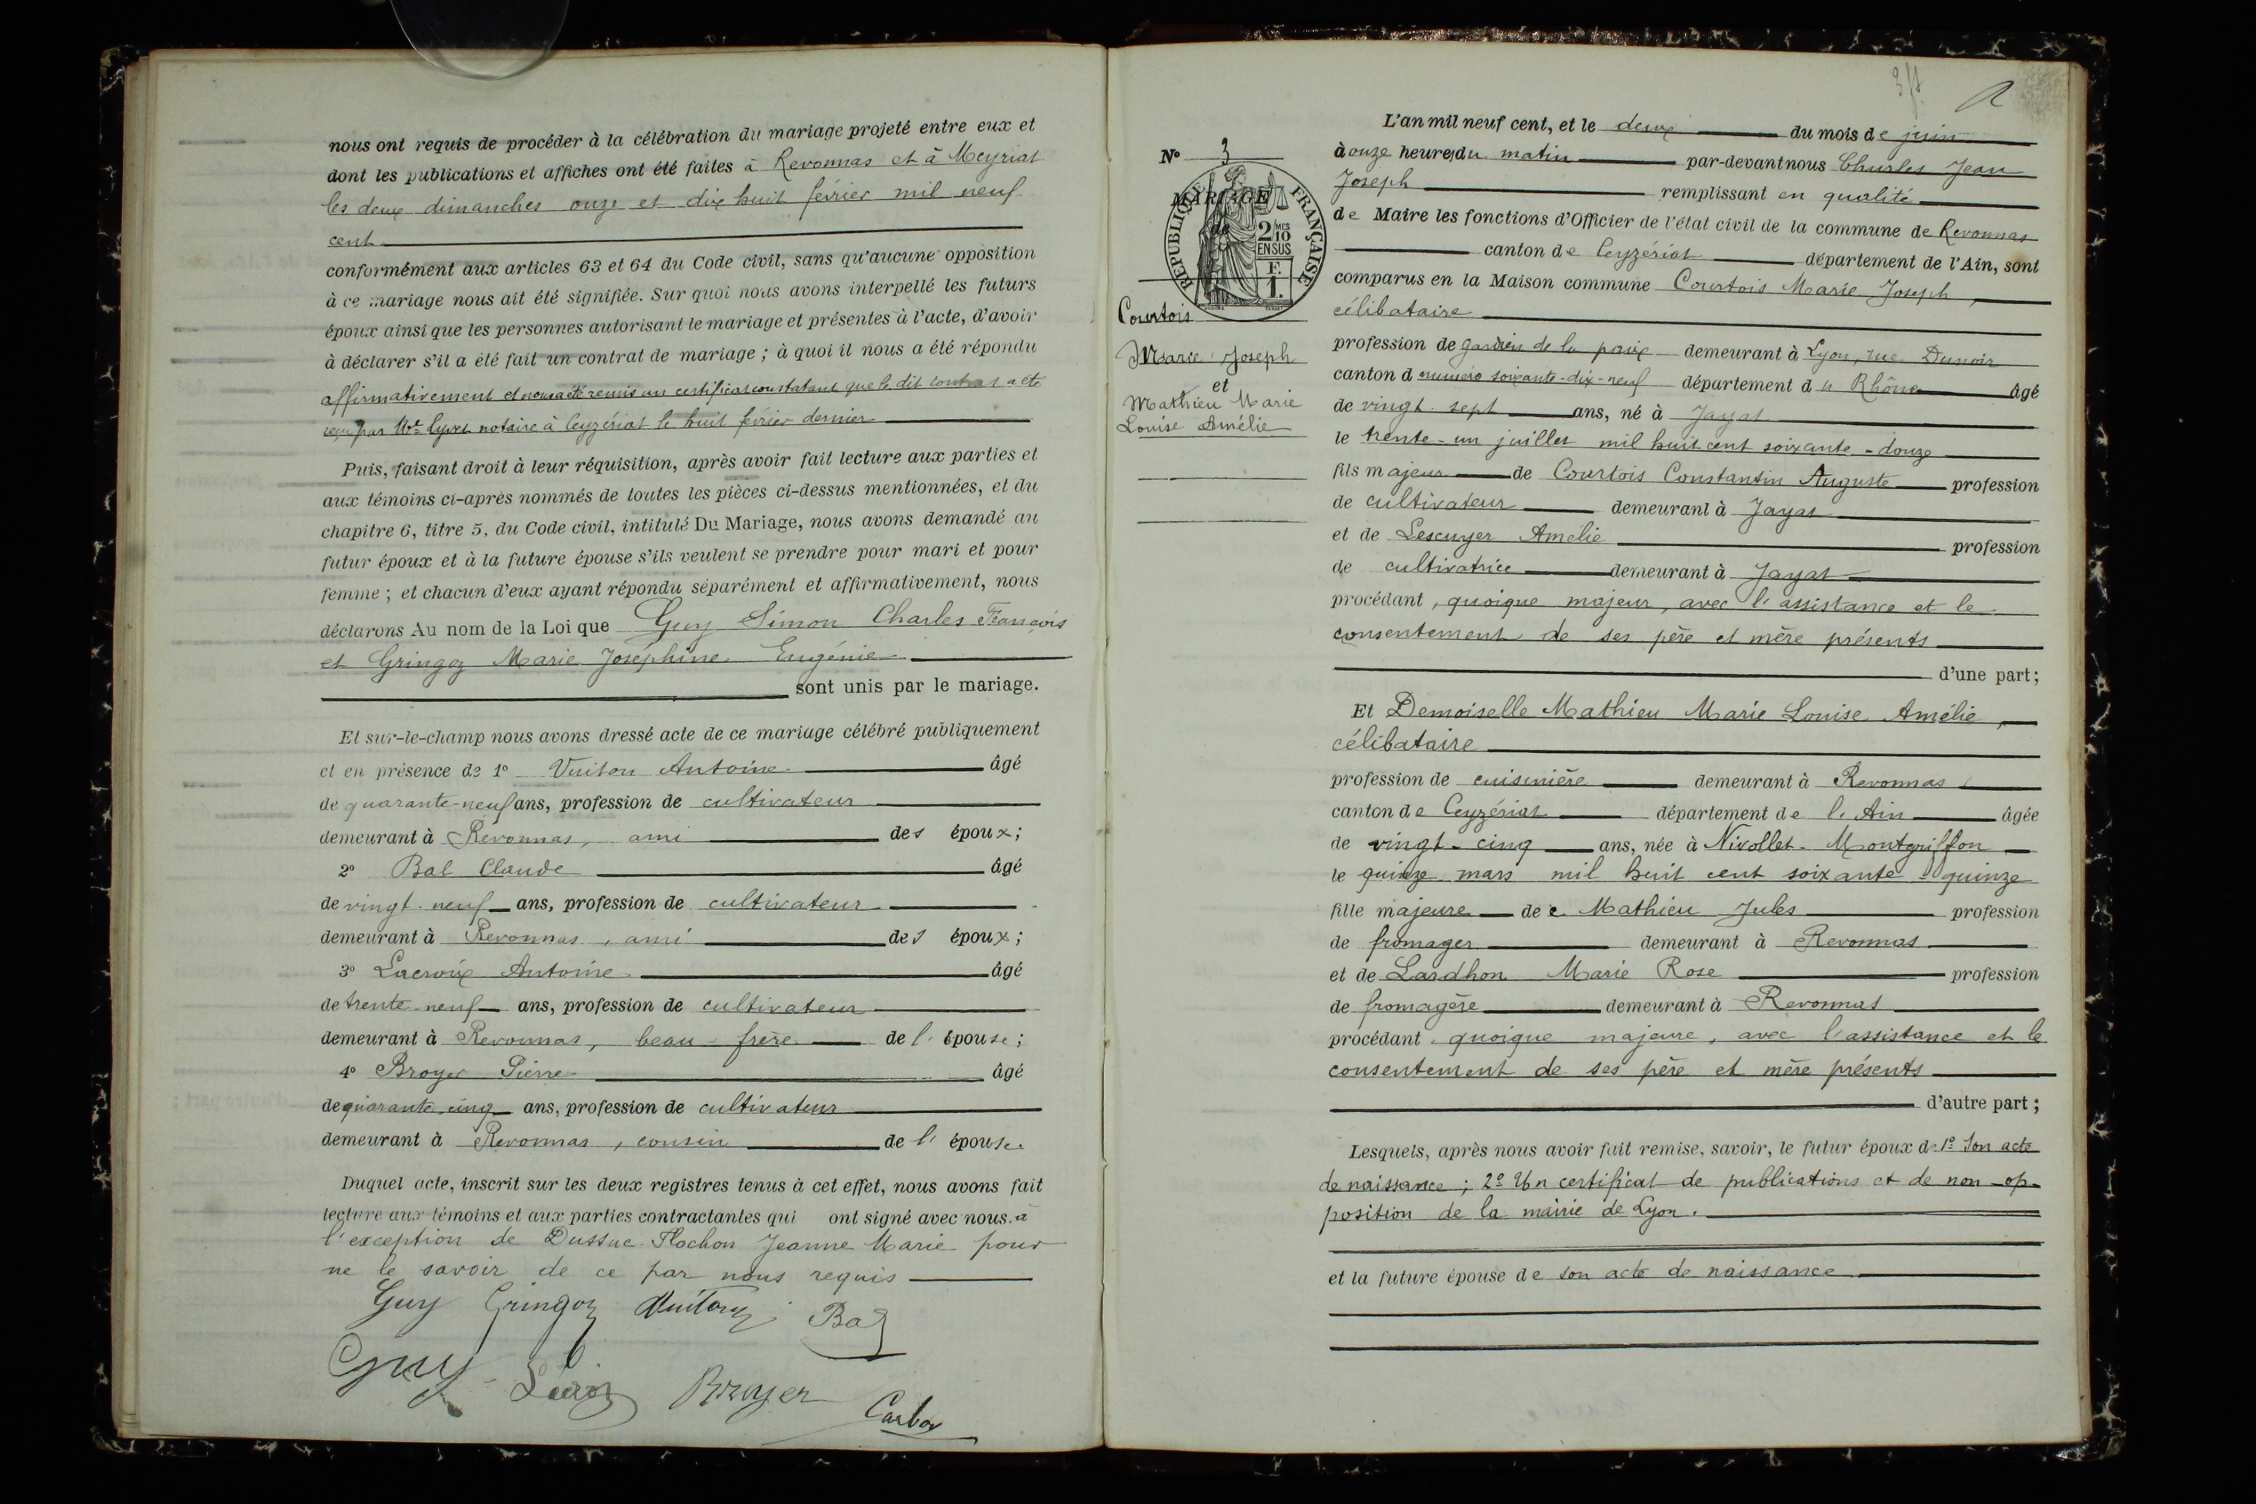 nous ont requis de procéder à la célébration du mariage projeté entre eux et
dont les publications et affiches ont été faites à Revonnas et à Meyriat
les deux dimanches onze et dix huit février mil neuf
cent
conformément aux articles 63 et 64 du Code civil, sans qu'aucune opposition
à ce mariage nous ait été signifiée. Sur quoi nous avons interpellé les futurs
époux ainsi que les personnes autorisant le mariage et présentes à l'acte, d'avoir
à déclarer s'il a été fait un contrat de mariage ; à quoi il nous a été répondu
affirmativement et nous a été remis un certificat constatant que le dit contrat a été
reçu par Mt notaire à Ceyzériat le huit février dernier
Puis, faisant droit à leur réquisition, après avoir fait lecture aux parties et
aux témoins ci-après nommés de toutes les pièces ci-dessus mentionnées, et du
chapitre 6, titre 5, du Code civil, intitulé Du Mariage, nous avons demandé au
futur époux et à la future épouse s'ils veulent se prendre pour mari et pour
femme ; et chacun d'eux ayant répondu séparément et affirmativement, nous
déclarons Au nom de la Loi que Guy Simon Charles François
et Gringoz Marie Joséphine Eugénie
sont unis par le mariage.
Et sur-le-champ nous avons dressé acte de ce mariage célébré publiquement
et en présence de 1° Vuiton Antoine âgé
de quarante-neuf ans, profession de cultivateur
demeurant à Revonnas, ami des époux ;
2° Bal Claude âgé
de vingt-neuf ans, profession de cultivateur
demeurant à Revonnas, ami des époux ;
3° Lacroix Antoine âgé
de trente-neuf ans, profession de cultivateur
demeurant à Revonnas, beau-frère de l'épouse ;
4° Broyer Pierre âgé
de quarante cinq ans, profession de cultivateur
demeurant à Revonnas, cousin de l'épouse.
Duquel acte, inscrit sur les deux registres tenus à cet effet, nous avons fait
lecture aux témoins et aux parties contractantes qui ont signé avec nous. à
l'exception de Dussuc Flochon Jeanne Marie pour
ne le savoir de ce par nous requis
Guy Gringoz Vuiton Bal
Guy Broyer
N° 3
MARIAGE
de
RÉPUBLIQUE FRANÇAISE
2 MES
10
EN SUS
F.
1.
Courtois
Marie Joseph
et
Mathieu Marie
Louise Amélie
L'an mil neuf cent, et le deux du mois de juin
à onze heures du matin par-devant nous Charles Jean
Joseph remplissant en qualité
de Maire les fonctions d'Officier de l'état civil de la commune de Revonnas
canton de Ceyzériat département de l'Ain, sont
comparus en la Maison commune Courtois Marie Joseph,
célibataire
profession de gardien de la paix demeurant à Lyon, rue Dunoir
canton d numéro soixante-dix-neuf département du Rhône âgé
de vingt-sept ans, né à Jayat
le trente-un juillet mil huit cent soixante-douze
fils majeur de Courtois Constantin Auguste profession
de cultivateur demeurant à Jayat
et de Lescuyer Amélie profession
de cultivatrice demeurant à Jayat
procédant, quoique majeur, avec l'assistance et le
consentement de ses père et mère présents
d'une part ;
Et Demoiselle Mathieu Marie Louise Amélie,
célibataire
profession de cuisinière demeurant à Revonnas,
canton de Ceyzériat département de l'Ain âgée
de vingt-cinq ans, née à Nivollet-Montgriffon
le quinze mars mil huit cent soixante-quinze
fille majeure de Mathieu Jules profession
de fromager demeurant à Revonnas
et de Lardhon Marie Rose profession
de fromagère demeurant à Revonnas
procédant, quoique majeure, avec l'assistance et le
consentement de ses père et mère présents
d'autre part ;
Lesquels, après nous avoir fait remise, savoir, le futur époux de 1° Son acte
de naissance ; 2° Un certificat de publications et de non-op-
position de la mairie de Lyon.
et la future épouse de son acte de naissance